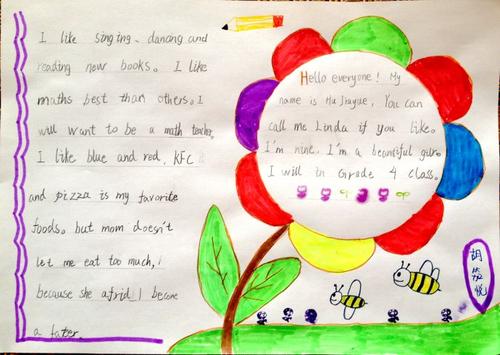 I like singing、dancing and
reading now books。I like
maths best than others。I
will want to be a math teacher。
I like blue and red, KFC
and pizza is my favorite
foods。but mom doesn't
let me eat too much,
because she afrid I become
a fater.
Hello everyone! My
name is Hu Jiayue, You can
call me Linda if you like。
I'm nine, I'm a beautiful girl。
I will in Grade 4 class。
胡笳悦